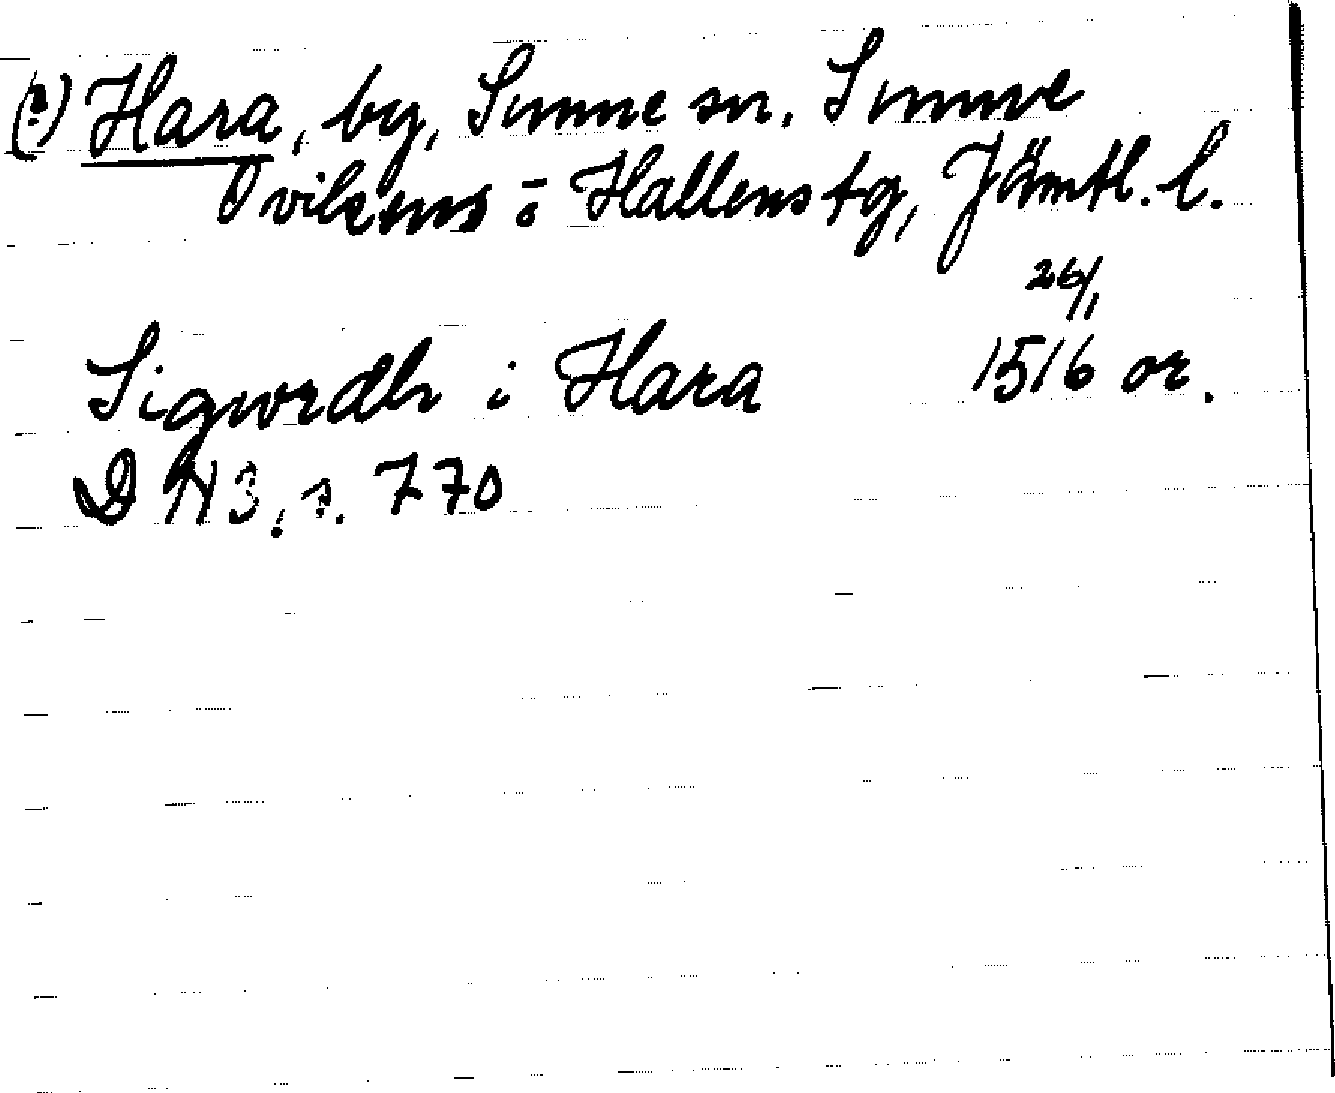 (?) Hara, by, Sunne sn. Sunne
Ovikens o Hallens tg, Jämtl. l.
26/1
Sigwrdh i Hara 1516 or.
D N 3, s. 770